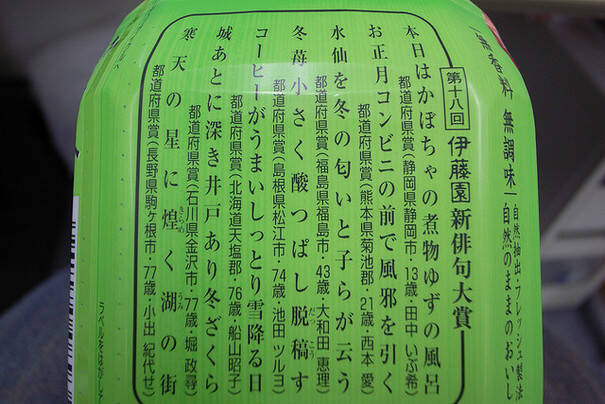 無香料 無調味
自然抽出・フレッシュ製法
自然のままのおいし
第十八回 伊藤園新俳句大賞
本日はかぼちゃの煮物ゆずの風呂
都道府県賞(静岡県静岡市・13歳・田中 いぶ希)
お正月コンビニの前で風邪を引く
都道府県賞(熊本県菊池郡・21歳・西本 愛)
水仙を冬の匂いと子らが云う
都道府県賞(福島県福島市・43歳・大和田 恵理)
冬苺小さく酸つぱし脱稿す
だつこう
都道府県賞(島根県松江市・74歳・池田 ツルヨ)
コーヒーがうまいしっとり雪降る日
都道府県賞(北海道天塩郡・76歳・船山昭子)
城あとに深き井戸あり冬ざくら
都道府県賞(石川県金沢市・77歳・堀 政尋)
寒天の星に煌く湖の街
きらめ うみ
都道府県賞(長野県駒ヶ根市・77歳・小出 紀代せ)
ラベルをはがし